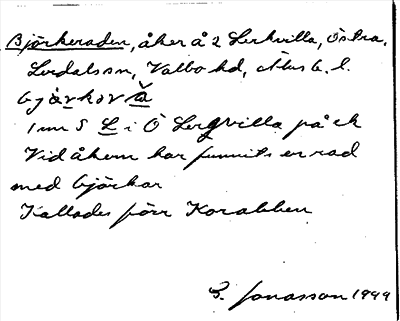 Björkeraden, åker å 2 Lerkvilla, Östra.
Lerdals sn, Valbo hd, Älvs b. l.
bjærkərǎ
1 mm S L i Ö Lergvilla på ek
Vid åkern har funnits en rad
med björkar
Kallades förr Korabben
G. Jonasson 1999